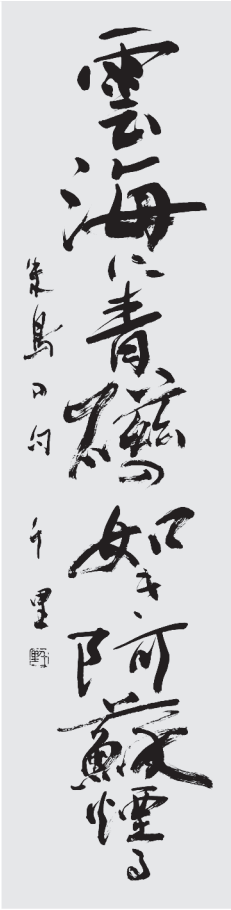 雲海に青の如き阿蘇煙る
の句 千里